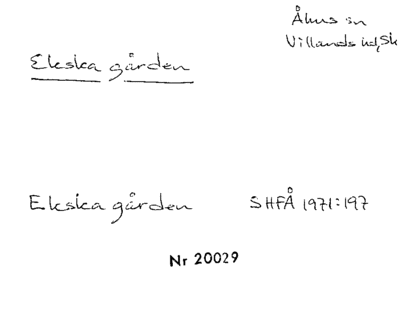 Åhus sn
Villands hd, Sk
Ekska gården
Ekska gården SHFÅ 1971:197
Nr 20029